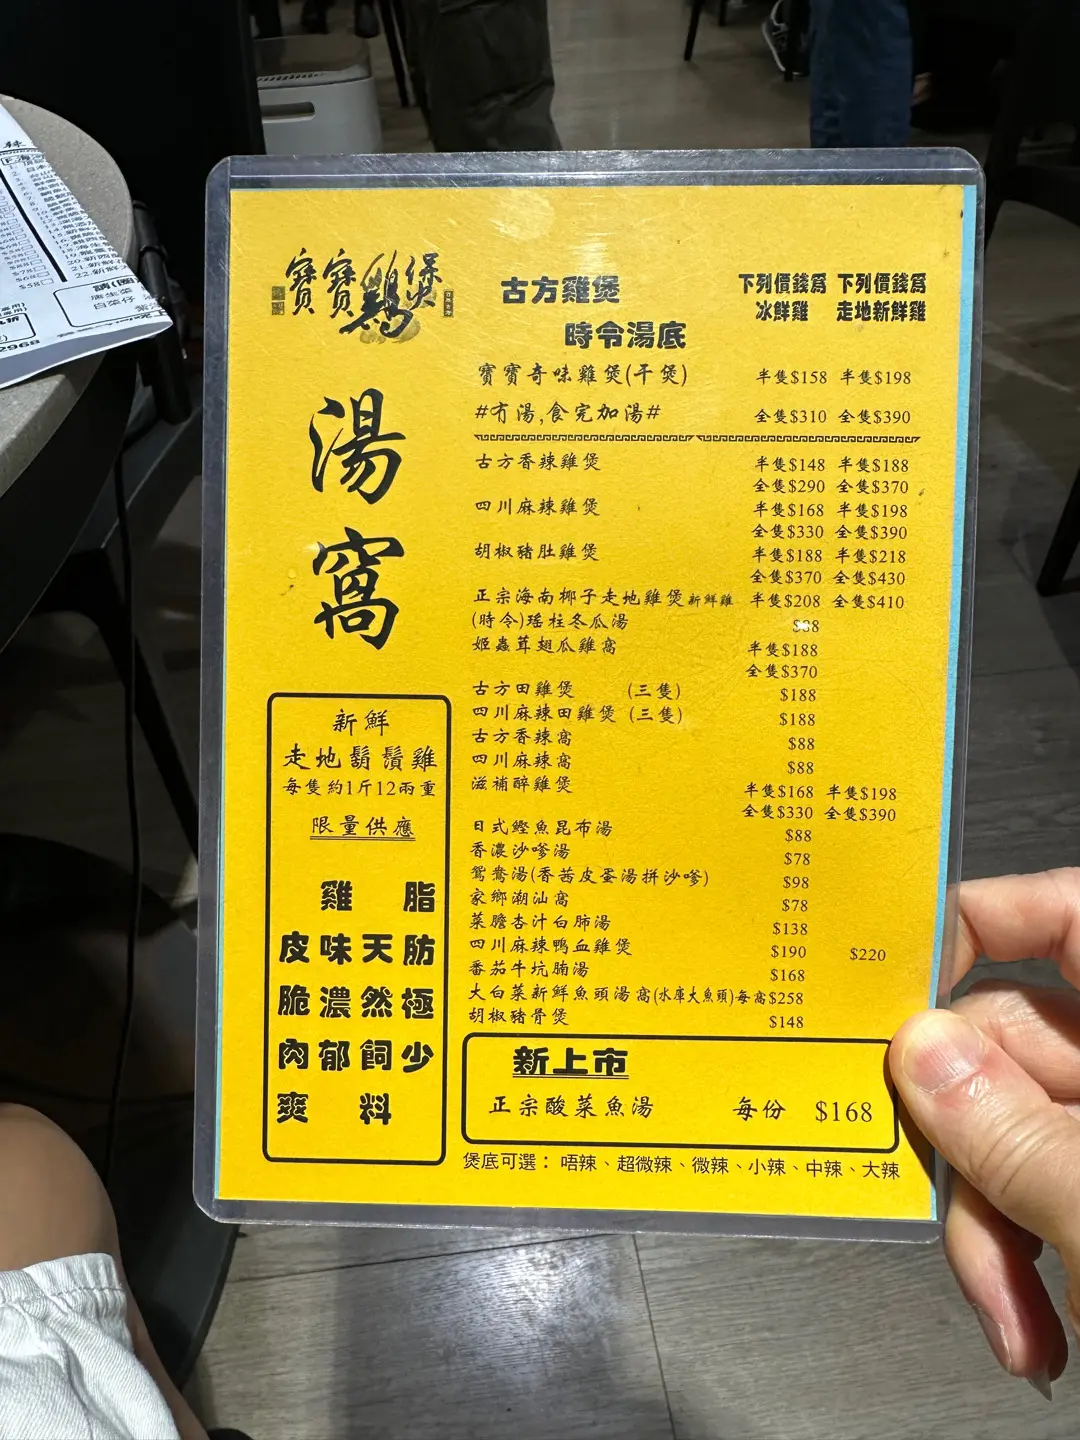 寶寶雞煲
湯
窩
新鮮
走地鬍鬚雞
每隻約1斤12兩重
限量供應
雞味濃郁
脂肪極少
皮脆肉爽
天然飼料
古方雞煲
時令湯底
下列價錢爲 下列價錢爲
冰鮮雞 走地新鮮雞
寶寶奇味雞煲(干煲) 半隻$158 半隻$198
#冇湯,食完加湯# 全隻$310 全隻$390
古方香辣雞煲 半隻$148 半隻$188
全隻$290 全隻$370
四川麻辣雞煲 半隻$168 半隻$198
全隻$330 全隻$390
胡椒豬肚雞煲 半隻$188 半隻$218
全隻$370 全隻$430
正宗海南椰子走地雞煲新鮮雞 半隻$208 全隻$410
(時令)瑤柱冬瓜湯 $88
姬蟲茸翅瓜雞窩 半隻$188
全隻$370
古方田雞煲 (三隻) $188
四川麻辣田雞煲 (三隻) $188
古方香辣窩 $88
四川麻辣窩 $88
滋補醉雞煲 半隻$168 半隻$198
全隻$330 全隻$390
日式鰹魚昆布湯 $88
香濃沙嗲湯 $78
鴛鴦湯(香茜皮蛋湯拼沙嗲) $98
家鄉潮汕窩 $78
菜膽杏汁白肺湯 $138
四川麻辣鴨血雞煲 $190 $220
番茄牛坑腩湯 $168
大白菜新鮮魚頭湯窩(水庫大魚頭)每窩$258
胡椒豬骨煲 $148
新上市
正宗酸菜魚湯 每份 $168
煲底可選： 唔辣、超微辣、微辣、小辣、中辣、大辣
2968